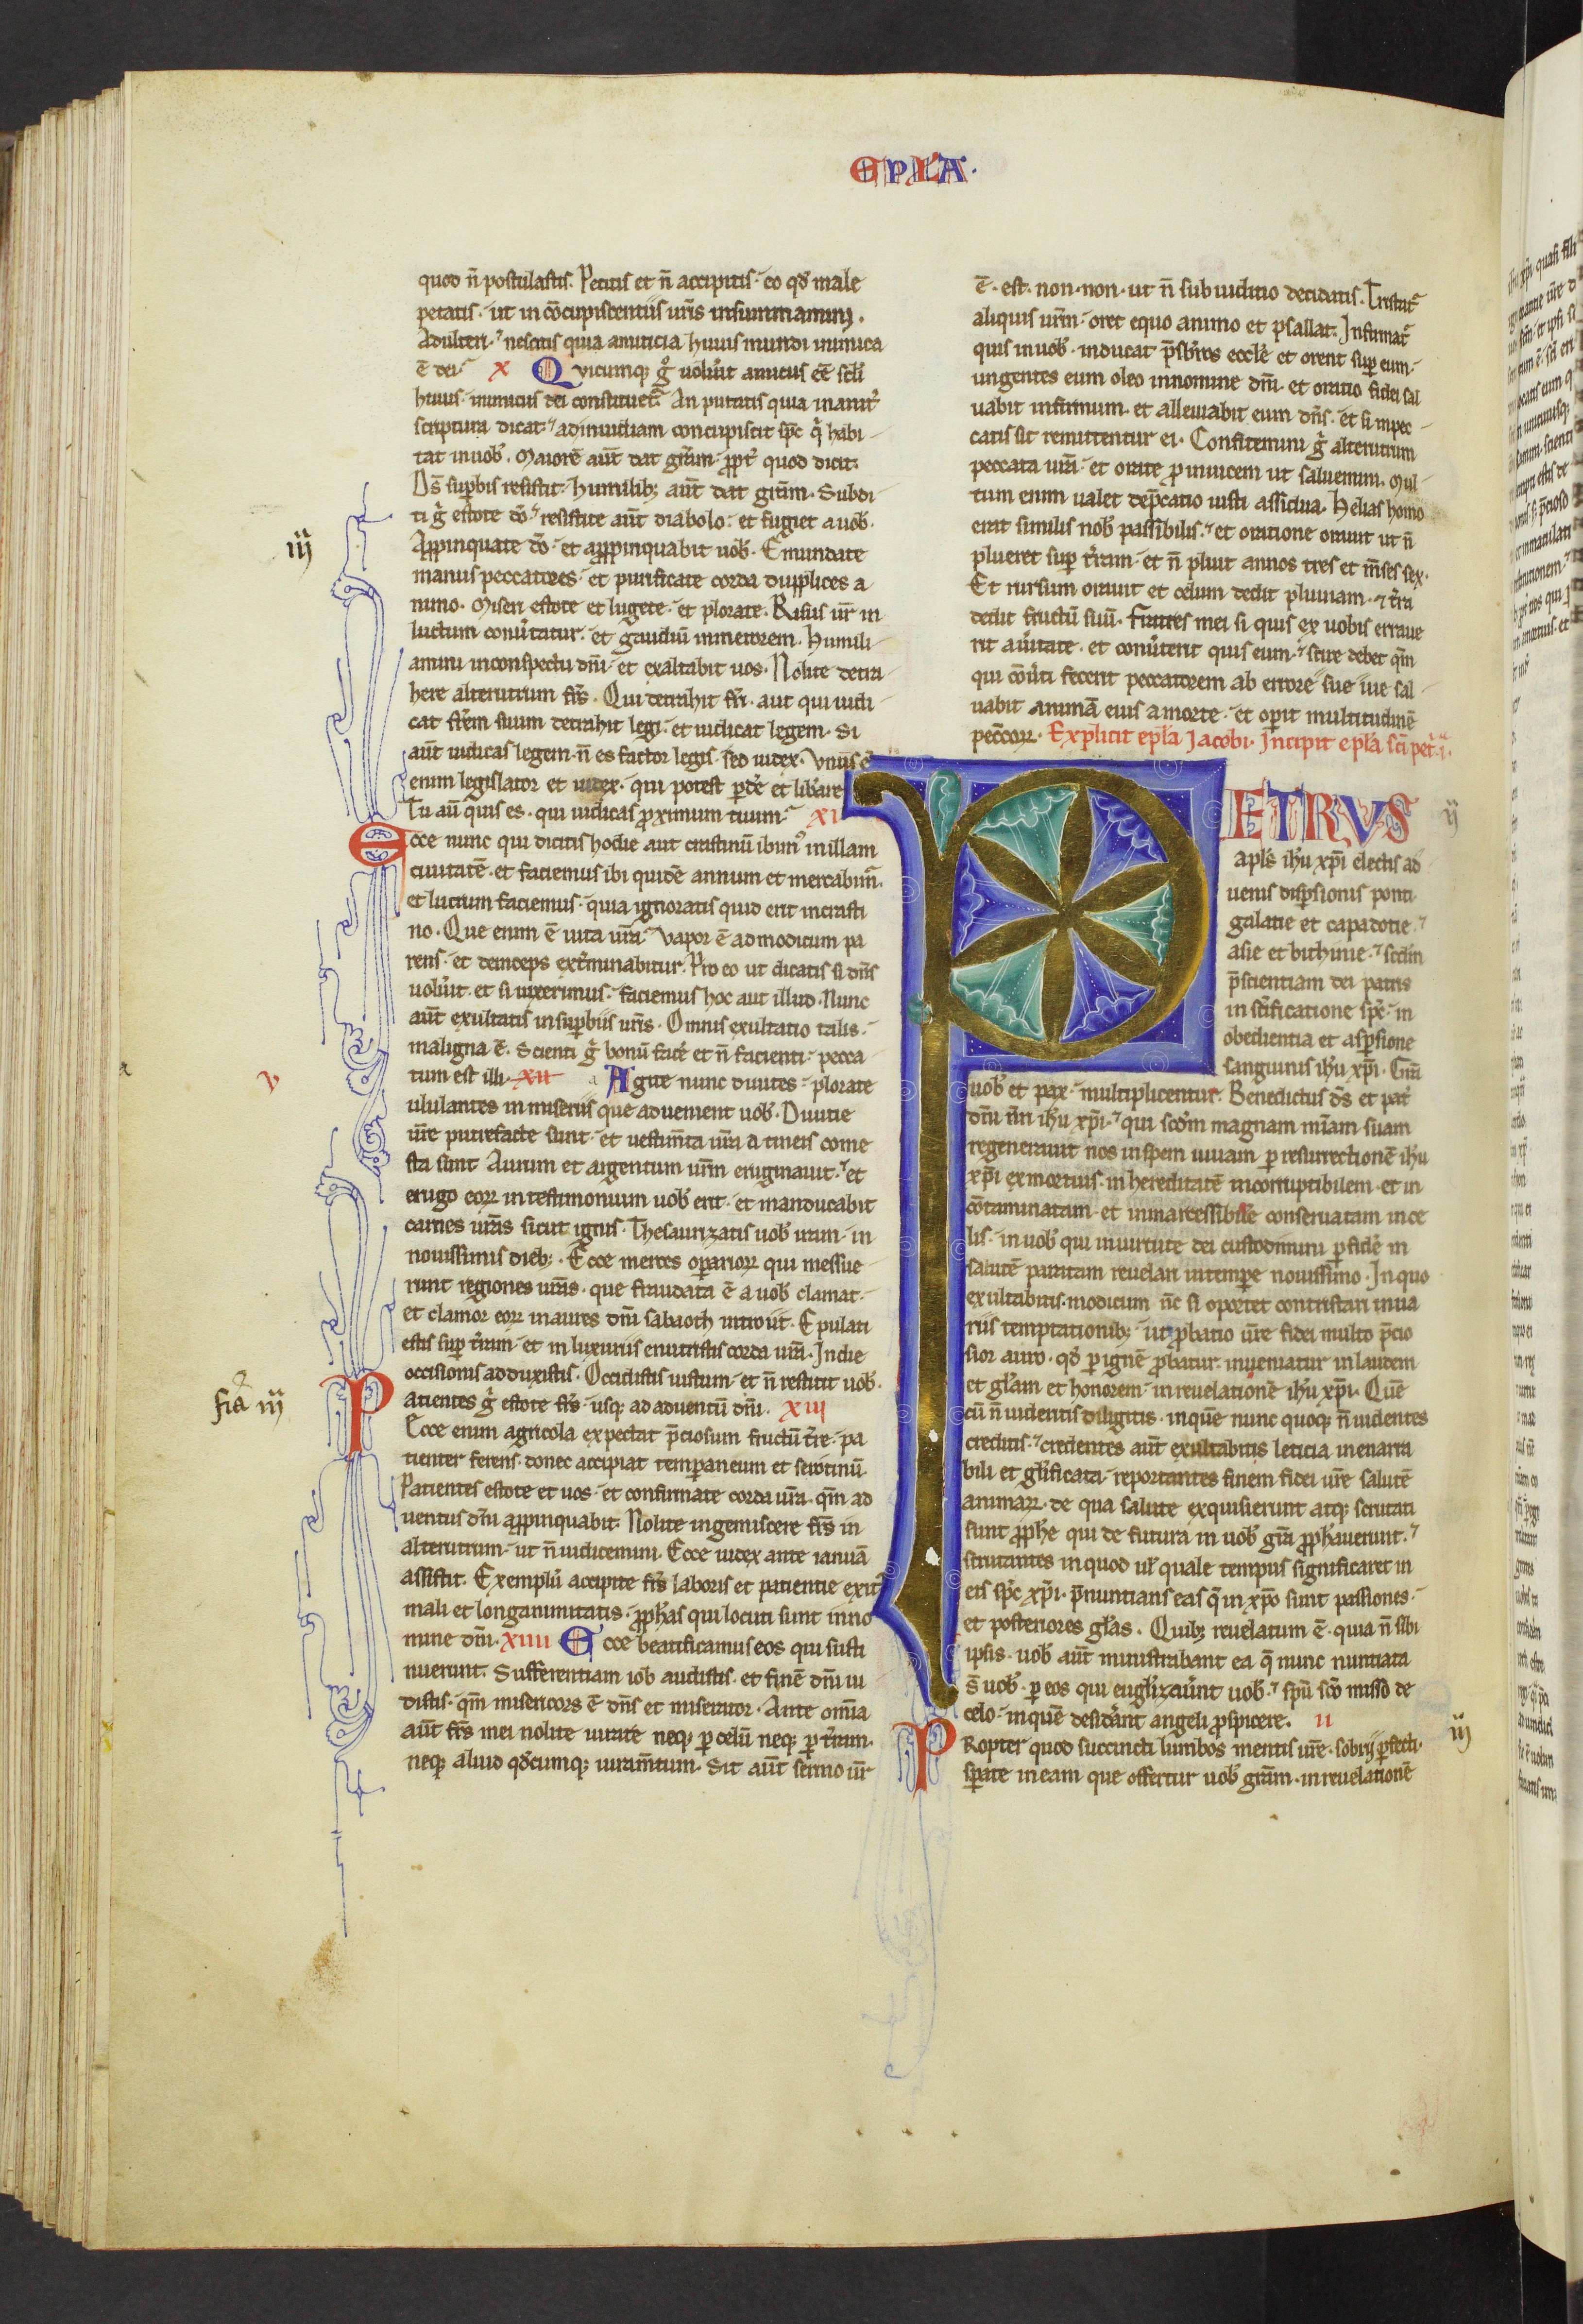 EPLA.
quod n̄ postulastis. Petitis et n̄ accipitis. eo qđ male
petatis. ut in cōcupiscentiis ur̄is insummamini.
Adulteri. nescitis quia amiticia huius mundi inimica
ē dei. X Quicumq; g̊ uolu̓it amicus eē sc̄li
huius. inimicus dei constituet̃. An putatis quia inanit̓
scriptura dicat. ad inuidiam concupiscit sp̄c q̇ habi
tat in uob̓. Maiorē aut̄ dat gr̄am. ꝓpt̓ quod dicit.
Ds̄ suꝑbis resistit. humilib; aut̄ dat gr̄am. Subdi
ti g̓ estote do̅. resistite aut̄ diabolo. et fugiet a uob̓.
Apꝓpinquate do̅. et apꝓpinquabit uob̓. Emundate
manus peccatores. et purificate corda dupplices a
nimo. Miseri estote et lugete. et plorate. Risus ur̄ in
luctum conu̓tatur. et gaudiū in merorem. Humili
amini in conspectu dn̄i. et exaltabit uos. Nolite detra
here alterutrum fr̄s. Qui detrahit fr̄i. aut qui iudi
cat fr̄em suum detrahit legi. et iudicat legem. Si
aut̄ iudicas legem. n̄ es factor legis. sed iudex. Vnus ē
enim legislator et iudex. qui potest ꝑde̓ et lib̓are
Tu aū quis es. qui iudicas proximum tuum. XI
Ecce nunc qui dicitis hodie aut crastinū ibim̓ in illam
ciuitatē. et faciemus ibi quidē annum et mercabim̓.
et lucrum faciemus. quia ignoratis quid erit in crasti
no. Que enim ē uita ur̄a. Vapor ē ad modicum pa
rens. et deinceps ext̓minabitur. Pro eo ut dicatis si dn̄s
uolu̓it. et si uixerimus. faciemus hoc aut illud. Nunc
aut̄ exultatis in suꝑbiis ur̄is. Omnis exultatio talis.
maligna ē. Scienti g̓ bonū face̓ et n̄ facienti. pecca
tum est illi. XII Agite nunc diuites. plorate
ululantes in miseriis que aduenient uob̓. Diuitie
ur̄e putrefacte sunt. et uestim̄ta ur̄a a tineis come
sta sunt Aurum et argentum ur̄m eruginauit. et
erugo eoꝝ in testimonium uob̓ erit. et manducabit
carnes ur̄as sicut ignis. Thesaurizatis uob̓ iram. in
nouissimis dieb;. Ecce merces oꝑarioꝝ qui messue
runt regiones ur̄as. que fraudata ē a uob̓ clamat.
et clamor eoꝝ in aures dn̄i sabaoth introiit. Epulati
estis suꝑ t̓ram. et in luxuriis enutristis corda ur̄a. In die
occisionis adduxistis. Occidistis iustum. et n̄ restitit uob̓.
Patientes g̓ estote fr̄s. usq; ad aduentū dn̄i. XIII
Ecce enim agricola expectat p̄ciosum fructū t̓re. pa
tienter ferens. donec accipiat temꝑaneum et serotinū.
Patientes estote et uos. et confirmate corda ur̄a. qm̄ ad
uentus dn̄i apꝓpinquabit. Nolite ingemiscere fr̄s in
alterutrum. ut n̄ iudicemini. Ecce iudex ante ianuā
assistit. Exemplū accipite fr̄s laboris et patientie exit̓
mali et longanimitatis. ꝓph̓as qui locuti sunt in no
mine dn̄i. XIIII Ecce beatificamus eos qui susti
nuerunt. Sufferentiam iob audistis. et finē dn̄i ui
distis. qm̄ misericors ē dn̄s et miserator. Ante om̄ia
aut̄ fr̄s mei nolite iurare neq; ꝑ celū neq; ꝑ t̓ram.
neq; aliud qđcumq; iuram̄tum. Sit aut̄ sermo ur̄
iij
v
fia iij
ē. est. non. non. ut n̄ sub iuditio decidatis. Tristat̃
aliquis ur̄m. oret equo animo et psallat. Infirmat̃
quis in uob̓. inducat p̄sb̓ros eccl̓e et orent suꝑ eum.
ungentes eum oleo in nomine dn̄i. et oratio fidei sal
uabit infirmum. et alleuiabit eum dn̄s. et si in pec
catis sit remittentur ei. Confitemini g̓ alterutrum
peccata ur̄a. et orate pro inuicem ut saluemini. Mul
tum enim ualet dep̄catio iusti assidua. Helias homo
erat similis nob̓ passibilis. et oratione orauit ut n̄
plueret suꝑ t̓ram. et n̄ pluit annos tres et m̄ses sex.
Et rursum orauit et celum dedit pluuiam. ⁊ t̓ra
dedit fructū suū. Fratres mei si quis ex uobis erraue
rit a u̓itate. et conu̓terit quis eum. scire debet qm̄
qui cōu̓ti fecerit peccatorem ab errore sue uie sal
uabit animā eius a morte. et oꝑit multitudinē
pecc̄oꝝ. Explicit ep̄la Jacobi. Incipit ep̄la sc̄i pet̓. i.
PETRVS
apl̓s ih̓u xp̄i electis ad
uenis disꝑsionis ponti
galatie et capadotie.
asie et bithinie. scd̄m
p̄scientiam dei patris
in sc̄ificatione sp̄c. in
obedientia et asꝑsione
sanguinis ih̓u xp̄i. Gr̄a
uob̓ et pax. multiplicentur. Benedictus d̄s et pat̓
dn̄i nr̄i ih̓u xp̄i. qui scd̄m magnam mīam suam
regenerauit nos in spem uiuam ꝑ resurrectionē ih̓u
xp̄i ex mortuis. in hereditatē incorruptibilem. et in
cōtaminatam. et inmarcessibilē conseruatam in ce
lis. in uob̓ qui in uirtute dei custodimini ꝑ fidē in
salutē paratam reuelari in temꝑe nouissimo. In quo
exultabitis. modicum n̄c si oportet contristari in ua
riis temptationib;. ut ꝓbatio ur̄e fidei multo p̄cio
sior auro. qđ ꝑ ignē ꝓbatur. inueniatur in laudem
et gl̓am et honorem. in reuelationē ih̓u xp̄i. Quē
cū n̄ uidentis diligitis. in quē nunc quoq; n̄ uidentes
creditis. credentes aut̄ exultabitis leticia inenarra
bili et gl̓ificata. reportantes finem fidei ur̄e salutē
animaꝝ. de qua salute exquisierunt atq; scrutati
sunt ꝓph̓e qui de futura in uob̓ gr̄a ꝓph̓auerunt.
scrutantes in quod ul̓ quale tempus significaret in
eis sp̄c xp̄i. p̄nuntians eas q̄ in xp̄o sunt passiones.
et posteriores gl̓as. Quib; reuelatum ē. quia n̄ sibi
ipsis. uob̓ aut̄ ministrabant ea q̄ nunc nuntiata
s̄ uob̓. ꝑ eos qui eugl̓izau̓unt uob̓. sp̄u sc̄o misso de
celo. in quē desid̓ant angeli ꝓspicere. II
Propter quod succincti lumbos mentis ur̄e. sobrij ꝑfecti.
sꝑate in eam que offertur uob̓ gr̄am. in reuelationē
ij
iij